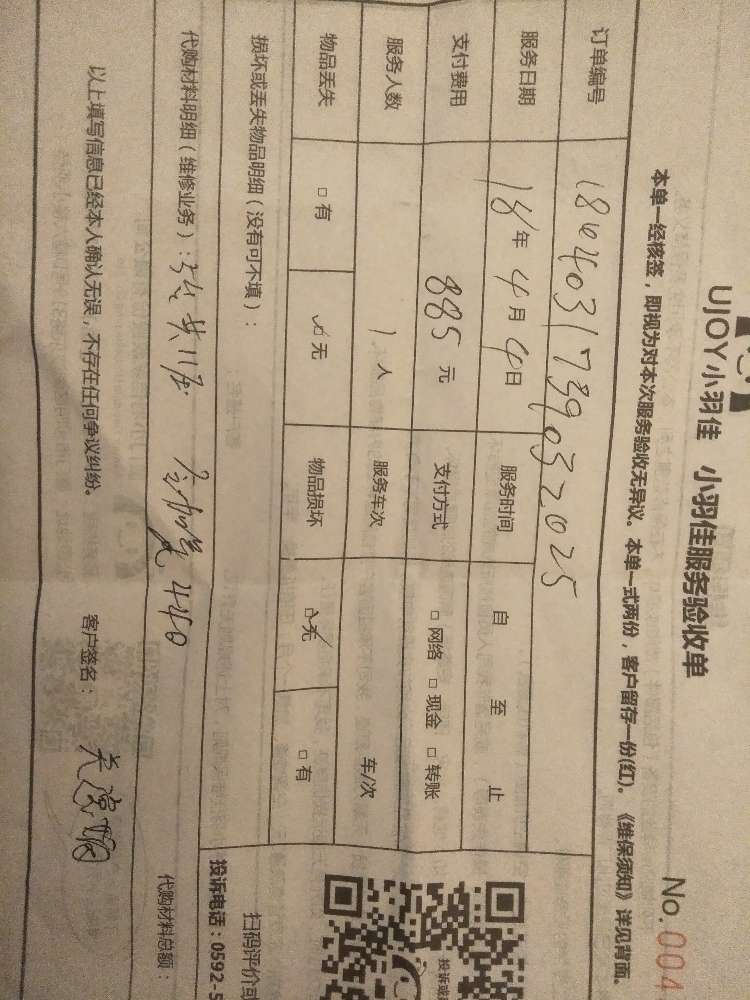 UJOY小羽佳 小羽佳服务验收单
No.004
本单一经核签，即视为对本次服务验收无异议。本单一式两份，客户留存一份(红)。《维保须知》详见背面。
订单编号 180403173903 2025
服务日期 18年4月4日 服务时间 自 至 止
支付费用 885元 支付方式 □网络 □现金 □转账
服务人数 1人 服务车次 车/次
物品丢失 □有 ☑无 物品损坏 ☑无 □有
损坏或丢失物品明细（没有可不填）：
代购材料明细（维修业务）：
440
代购材料总额：
以上填写信息已经本人确认无误，不存在任何争议纠纷。 客户签名：
投诉或
扫码评价或
投诉电话：0592-5